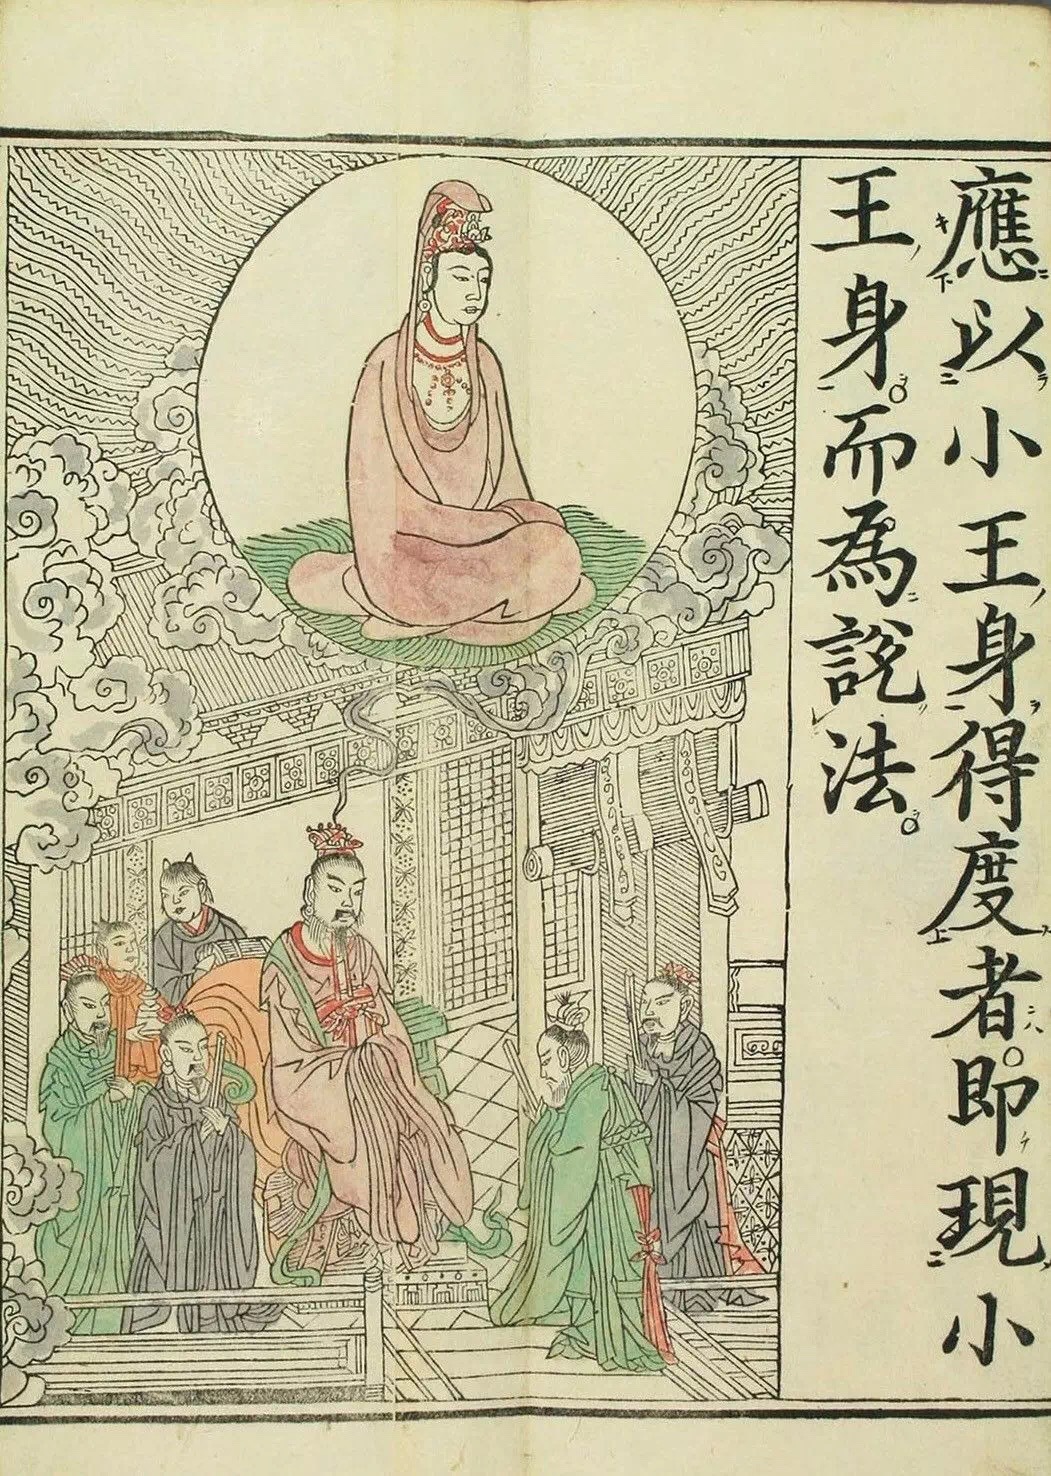 應以小王身得度者。即現小
王身。而為說法。